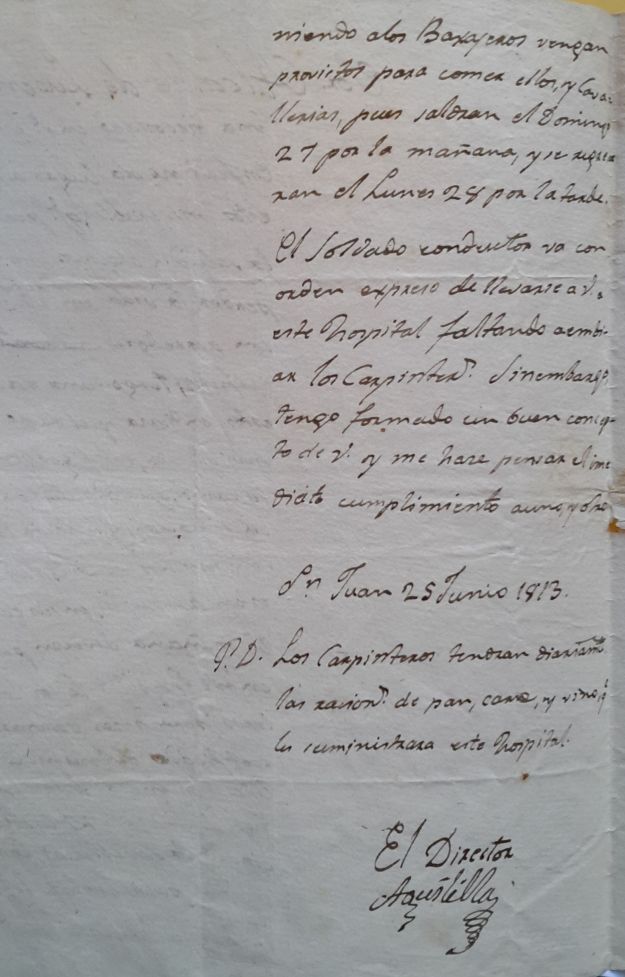 niendo alos Baxajeros vengan
provistos para comer ellos, y Cava-
llerias, pues saldran el Domingo
27 por la mañana, y se regresa
ran el Lunes 28 por la tarde.
El Soldado conductor va con
orden expreso de llevarse a V.
este Hospital faltando aembi
ar los Carpinter.s Sinembargo,
tengo formado un buen concep
to de V. y me hace pensar el ime
diato cumplimiento auno, y otro
S.n Juan 25 Junio 1813.
P.D. Los Carpinteros tendran diariam.te
las racion.s de pan, carne, y vino q.e
les suministrara este Hospital.
El Director